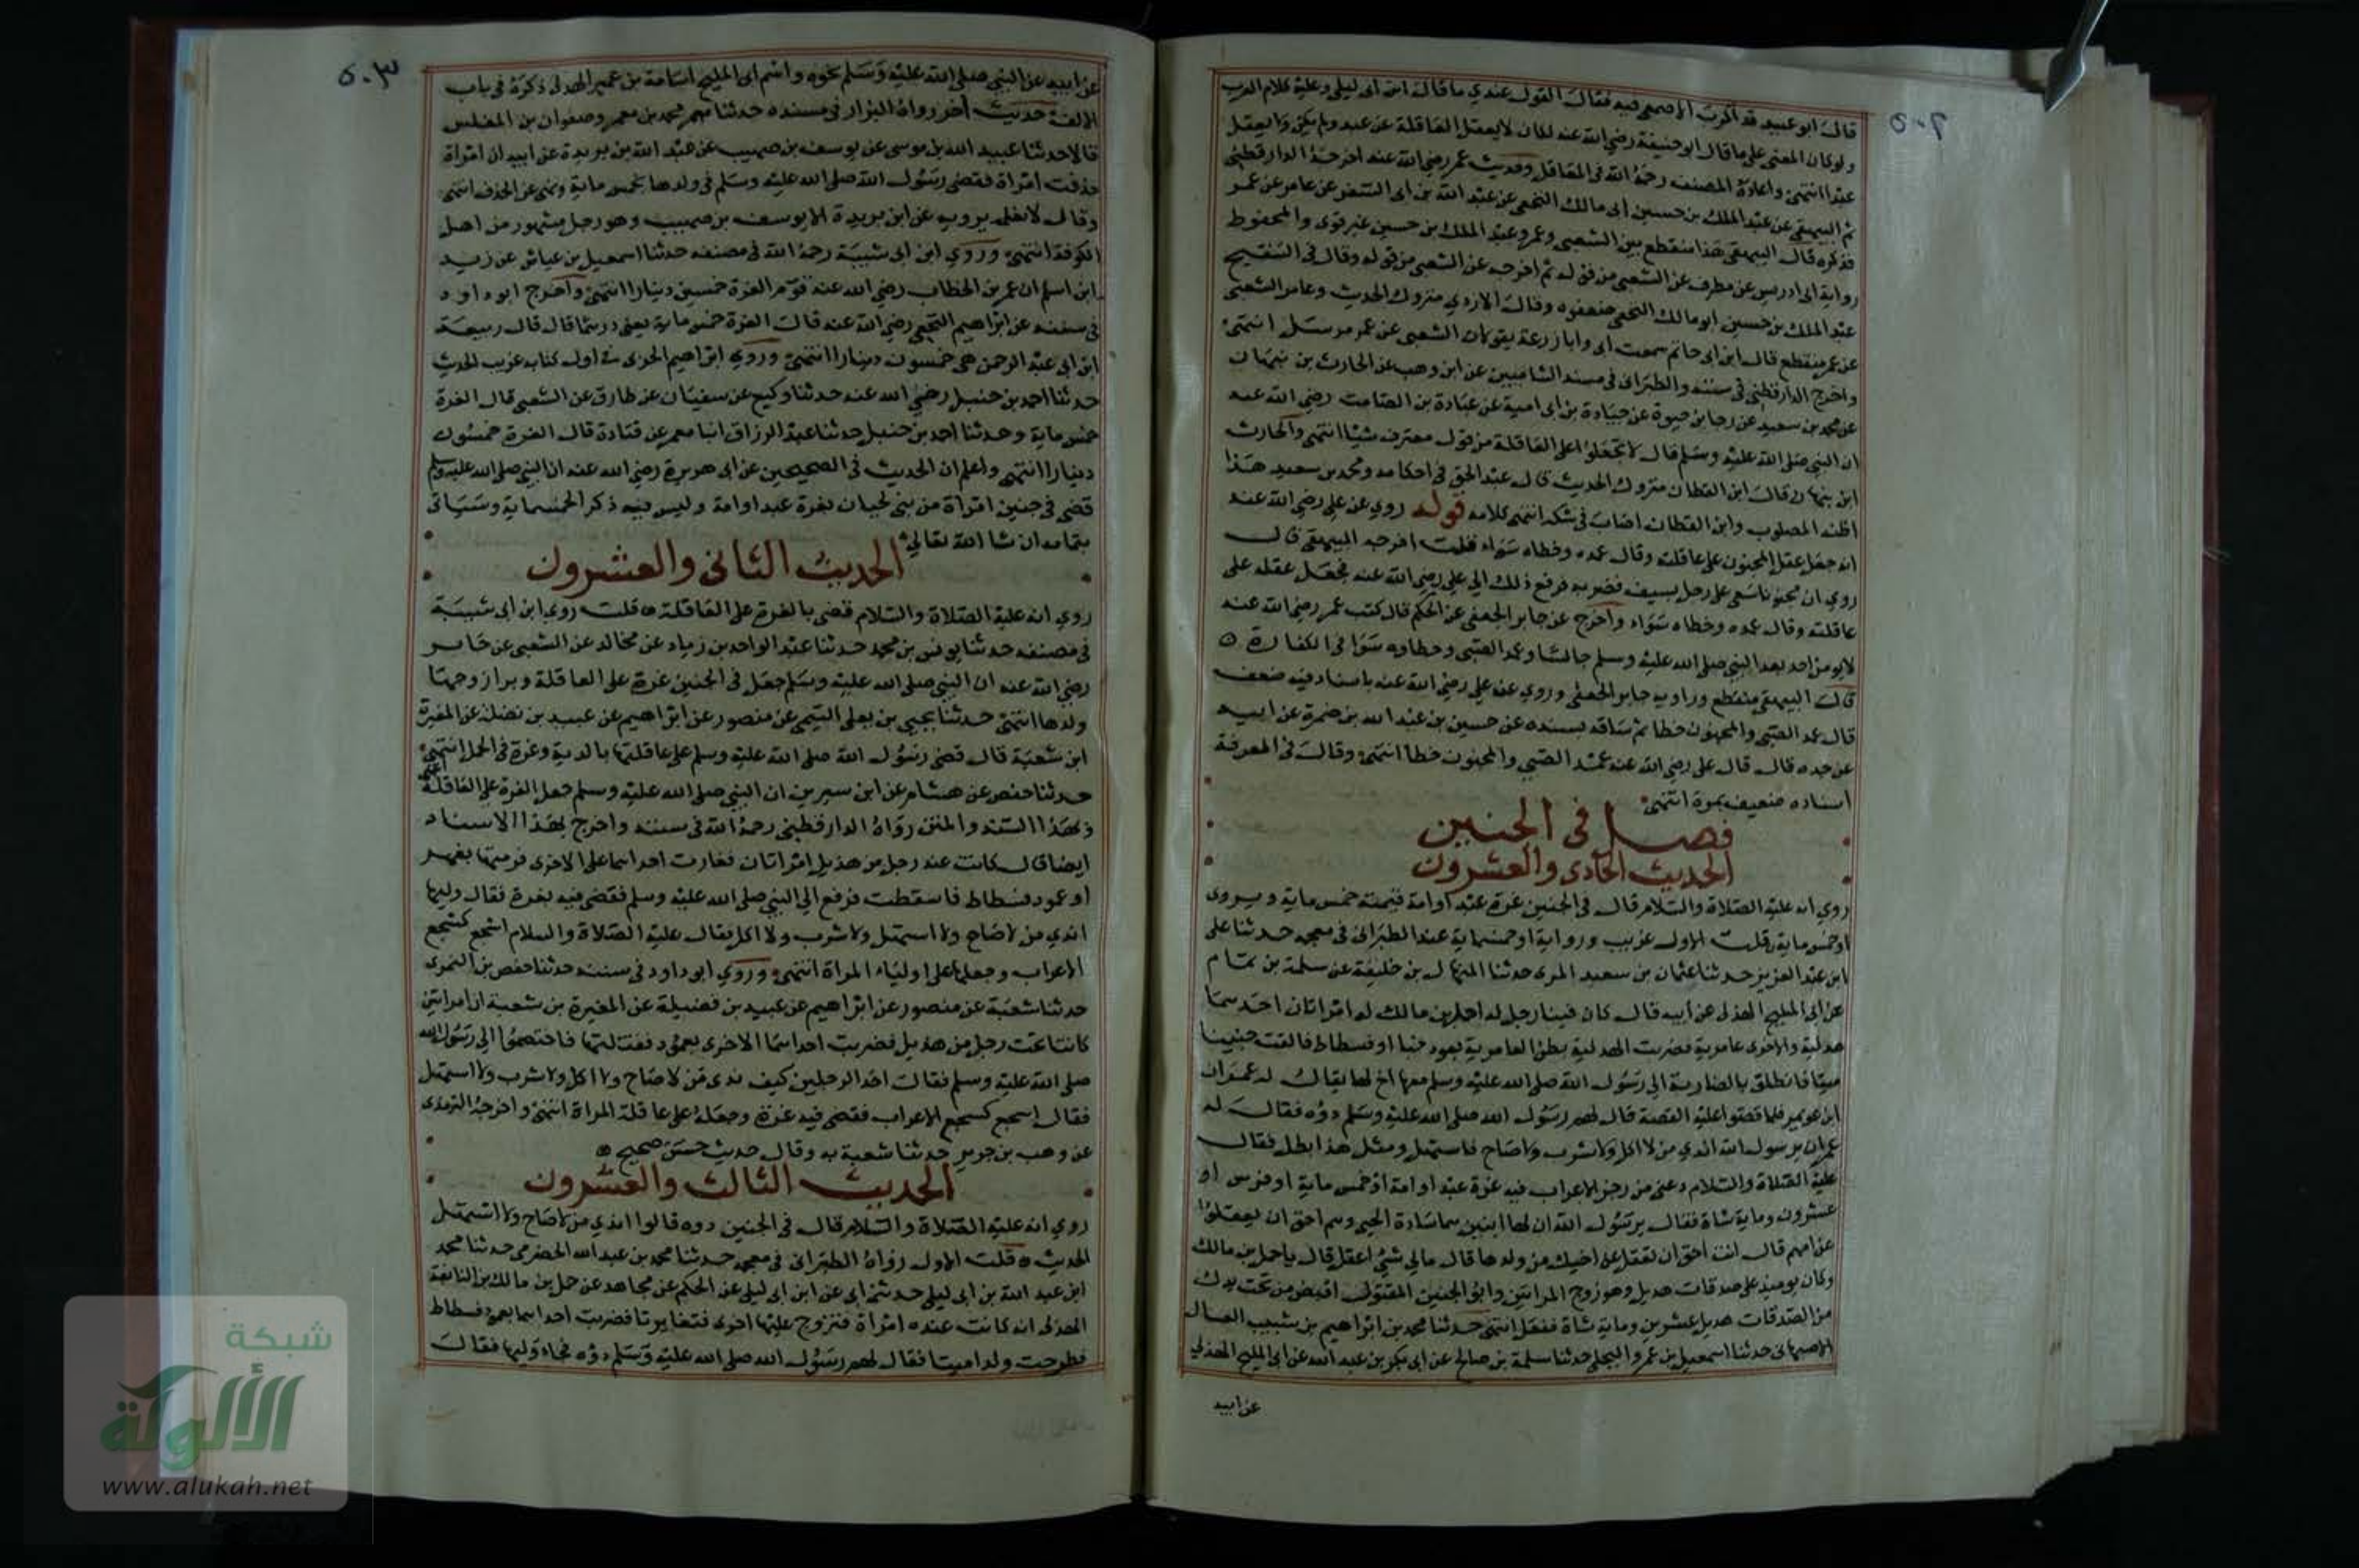 ٥٠٢
قال ابو عبيد قد اكرب الاصمعي فيه فقال القول عندي ما قاله ابن ابي ليلى وعليه كلام العرب
ولو كان المعنى على ما قال ابو حنيفة رضي الله عنه لكان لا يعقل العاقلة عن عبد ولم يكن ولا يعقل
عبدا انتهى واعاده المصنف رحمه الله في المعاقل وحديث عمر رضي الله عنه اخرجه الدارقطني
ثم البيهقي عن عبد الملك بن حسين ابي مالك النخعي عن عبد الله بن ابي السفر عن عامر عن عمر
فذكره قال البيهقي هذا منقطع بين الشعبي وعمر وعبد الملك بن حسين غير قوي والمحفوظ
رواية ابي ادريس عن مطرف عن الشعبي من قوله ثم اخرجه عن الشعبي من قوله وقال في التنقيح
عبد الملك بن حسين ابو مالك النخعي ضعفوه وقال الازدي متروك الحديث وعامر الشعبي
عن عمر منقطع قال ابن ابي حاتم سمعت ابي وابا زرعة يقولان الشعبي عن عمر مرسل انتهى
واخرج الدارقطني في سننه والطبراني في مسند الشاميين عن ابن وهب عن الحارث بن نبهان
عن محمد بن سعيد عن رجا بن حيوة عن جنادة بن ابي امية عن عبادة بن الصامت رضي الله عنه
ان النبي صلى الله عليه وسلم قال لا تجعلوا على العاقلة من قول معترف شيئا انتهى والحارث
ابن نبهان قال ابن القطان متروك الحديث قال عبد الحق في احكامه ومحمد بن سعيد هذا
اظنه المصلوب وابن القطان اصاب في شكه انتهى كلامه قوله روي عن علي رضي الله عنه
انه جعل عقل المجنون على عاقلته وقال عمده وخطاه سواء قلت اخرجه البيهقي قال
روي ان مجنونا سعى على رجل بسيف فضربه فرفع ذلك الي علي رضي الله عنه فجعل عقله على
عاقلته وقال عمده وخطاه سواء واخرج عن جابر الجعفي عن الحكم قال كتب عمر رضي الله عنه
لا يؤمن احد بعد النبي صلى الله عليه وسلم جالسا وعمد الصبي وخطاوه سوا في الكفارة
قال البيهقي منقطع وراويه جابر الجعفي وروي عن علي رضي الله عنه باسناد فيه ضعف
قال عمد الصبي والمجنون خطا ثم ساقه بسنده عن حسين بن عبد الله بن ضمرة عن ابيه
عن جده قال قال علي رضي الله عنه عمد الصبي والمجنون خطا انتهى وقال في المعرفة
اسناده ضعيف بمرة انتهى
فصل في الجنين
الحديث الحادي والعشرون
روي انه عليه الصلاة والسلام قال في الجنين غرة عبد او امة قيمته خمس ماية ويروى
او خمس ماية قلت الاول غريب ورواية او خمسماية عند الطبراني في معجمه حدثنا علي
ابن عبد العزيز حدثنا عثمان بن سعيد المري حدثنا المنهال بن خليفة عن سلمة بن تمام
عن ابي المليح الهذلي عن ابيه قال كان فينا رجل له احمل بن مالك له امراتان احدهما
هذلية والاخرى عامرية فضربت الهذلية بطن العامرية بعود خبا او فسطاط فالقت جنينا
ميتا فانطلق بالضاربة الى رسول الله صلى الله عليه وسلم معها اخ لها يقال له عمران
ابن عويمر فلما قصوا عليه القصة قال لهم رسول الله صلى الله عليه وسلم دوه فقال له
عمران يرسول الله اندي من لا اكل ولا شرب ولا صاح فاستهل ومثل هذا يطل فقال
عليه الصلاة والسلام دعني من رجز الاعراب فيه غرة عبد او امة او خمس ماية او فرس او
عشرون وماية شاة فقال يرسول الله ان لها ابنين هما سادة الحي وهم احق ان يعقلوا
عن امهم قال انت احق ان تعقل عن اخيك من ولدها قال مالي شئ اعقل قال يا حمل بن مالك
وكان يوميذ على صدقات هذيل وهو زوج المراتين وابو الجنين المقتول اقبض من تحت يدك
من صدقات هذيل عشرين وماية شاة ففعل انتهى حدثنا محمد بن ابراهيم بن شبيب العسال
الاصبهاني حدثنا اسمعيل بن عمرو البجلي حدثنا سلمة بن صالح عن ابي بكر بن عبد الله عن ابي المليح الهذلي
عن ابيه
٥٠٣
عن ابيه عن النبي صلى الله عليه وسلم نحوه واسم ابي المليح اسامة بن عمير الهذلي ذكره في باب
الالف حديث آخر رواه البزار في مسنده حدثنا محمد بن معمر وصفوان بن المغلس
قالا حدثنا عبيد الله بن موسى عن يوسف بن صهيب عن عبد الله بن بريدة عن ابيه ان امراة
حذفت امراة فقضى رسول الله صلى الله عليه وسلم في ولدها بخمس ماية ونهى عن الحذف انتهى
وقال لا نعلم يرويه عن ابن بريدة الا يوسف بن صهيب وهو رجل مشهور من اهل
الكوفة انتهى وروي ابن ابي شيبة رحمه الله في مصنفه حدثنا اسمعيل بن عياش عن زيد
ابن اسلم ان عمر بن الخطاب رضي الله عنه قوم الغرة خمسين دينارا انتهى واخرج ابو داود
في سننه عن ابراهيم النخعي رضي الله عنه قال الغرة خمس ماية يعني درهما قال قال ربيعة
ابن ابي عبد الرحمن هي خمسون دينارا انتهى وروي ابراهيم الحربي في اول كتابه غريب الحديث
حدثنا احمد بن حنبل رضي الله عنه حدثنا وكيع عن سفيان عن طارق عن الشعبي قال الغرة
خمس ماية وحدثنا احمد بن حنبل حدثنا عبد الرزاق انبا معمر عن قتادة قال الغرة خمسون
دينارا انتهى واعلم ان الحديث في الصحيحين عن ابي هريرة رضي الله عنه ان النبي صلى الله عليه وسلم
قضى في جنين امراة من بني لحيان بغرة عبد او امة وليس فيه ذكر الخمسماية وسياتي
بتمامه ان شا الله تعالى
الحديث الثاني والعشرون
روي انه عليه الصلاة والسلام قضى بالغرة على العاقلة قلت روي ابن ابي شيبة
في مصنفه حدثنا يونس بن محمد حدثنا عبد الواحد بن زياد عن مجالد عن الشعبي عن جابر
رضي الله عنه ان النبي صلى الله عليه وسلم جعل في الجنين غرة على العاقلة وبرا زوجها
وولدها انتهى حدثنا يحيى بن يعلى التيمي عن منصور عن ابراهيم عن عبيد بن نضلة عن المغيرة
ابن شعبة قال قضى رسول الله صلى الله عليه وسلم على عاقلتها بالدية وغرة في الحمل انتهى
حدثنا حفص عن هشام عن ابن سيرين ان النبي صلى الله عليه وسلم جعل الغرة على العاقلة انتهى
وبهذا السند والمتن رواه الدارقطني رحمه الله في سننه واخرج بهذا الاسناد
ايضا قال كانت عند رجل من هذيل امراتان فغارت احداهما على الاخرى فرمتها بفهر
او عمود فسطاط فاسقطت فرفع الي النبي صلى الله عليه وسلم فقضى فيه بغرة فقال وليها
اندي من لا صاح ولا استهل ولا شرب ولا اكل فقال عليه الصلاة والسلام اسجع كسجع
الاعراب وجعلها على اولياء المراة انتهى وروي ابو داود في سننه حدثنا حفص بن النمري
حدثنا شعبة عن منصور عن ابراهيم عن عبيد بن فضيلة عن المغيرة بن شعبة ان امراتين
كانتا تحت رجل من هذيل فضربت احداهما الاخرى بعمود فقتلتها فاختصموا الى رسول الله
صلى الله عليه وسلم فقال احد الرجلين كيف ندى من لا صاح ولا اكل ولا شرب ولا استهل
فقال اسجع كسجع الاعراب فقضى فيه غرة وجعله على عاقلة المراة انتهى واخرجه الترمذي
عن وهب بن جرير حدثنا شعبة به وقال حديث حسن صحيح
الحديث الثالث والعشرون
روي انه عليه الصلاة والسلام قال في الجنين دوه قالوا اندي من لا صاح ولا استهل
الحديث قلت الاول رواه الطبراني في معجمه حدثنا محمد بن عبد الله الحضرمي حدثنا محمد
ابن عبد الله بن ابي ليلى حدثني ابي عن ابن ابي ليلى عن الحكم عن مجاهد عن حمل بن مالك بن النابغة
الهذلي انه كانت عنده امراة فتزوج عليها اخرى فتغايرتا فضربت احداهما بعمود فسطاط
فطرحت ولدا ميتا فقال لهم رسول الله صلى الله عليه وسلم دوه فجاء وليها فقال
شبكة
الألوكة
www.alukah.net